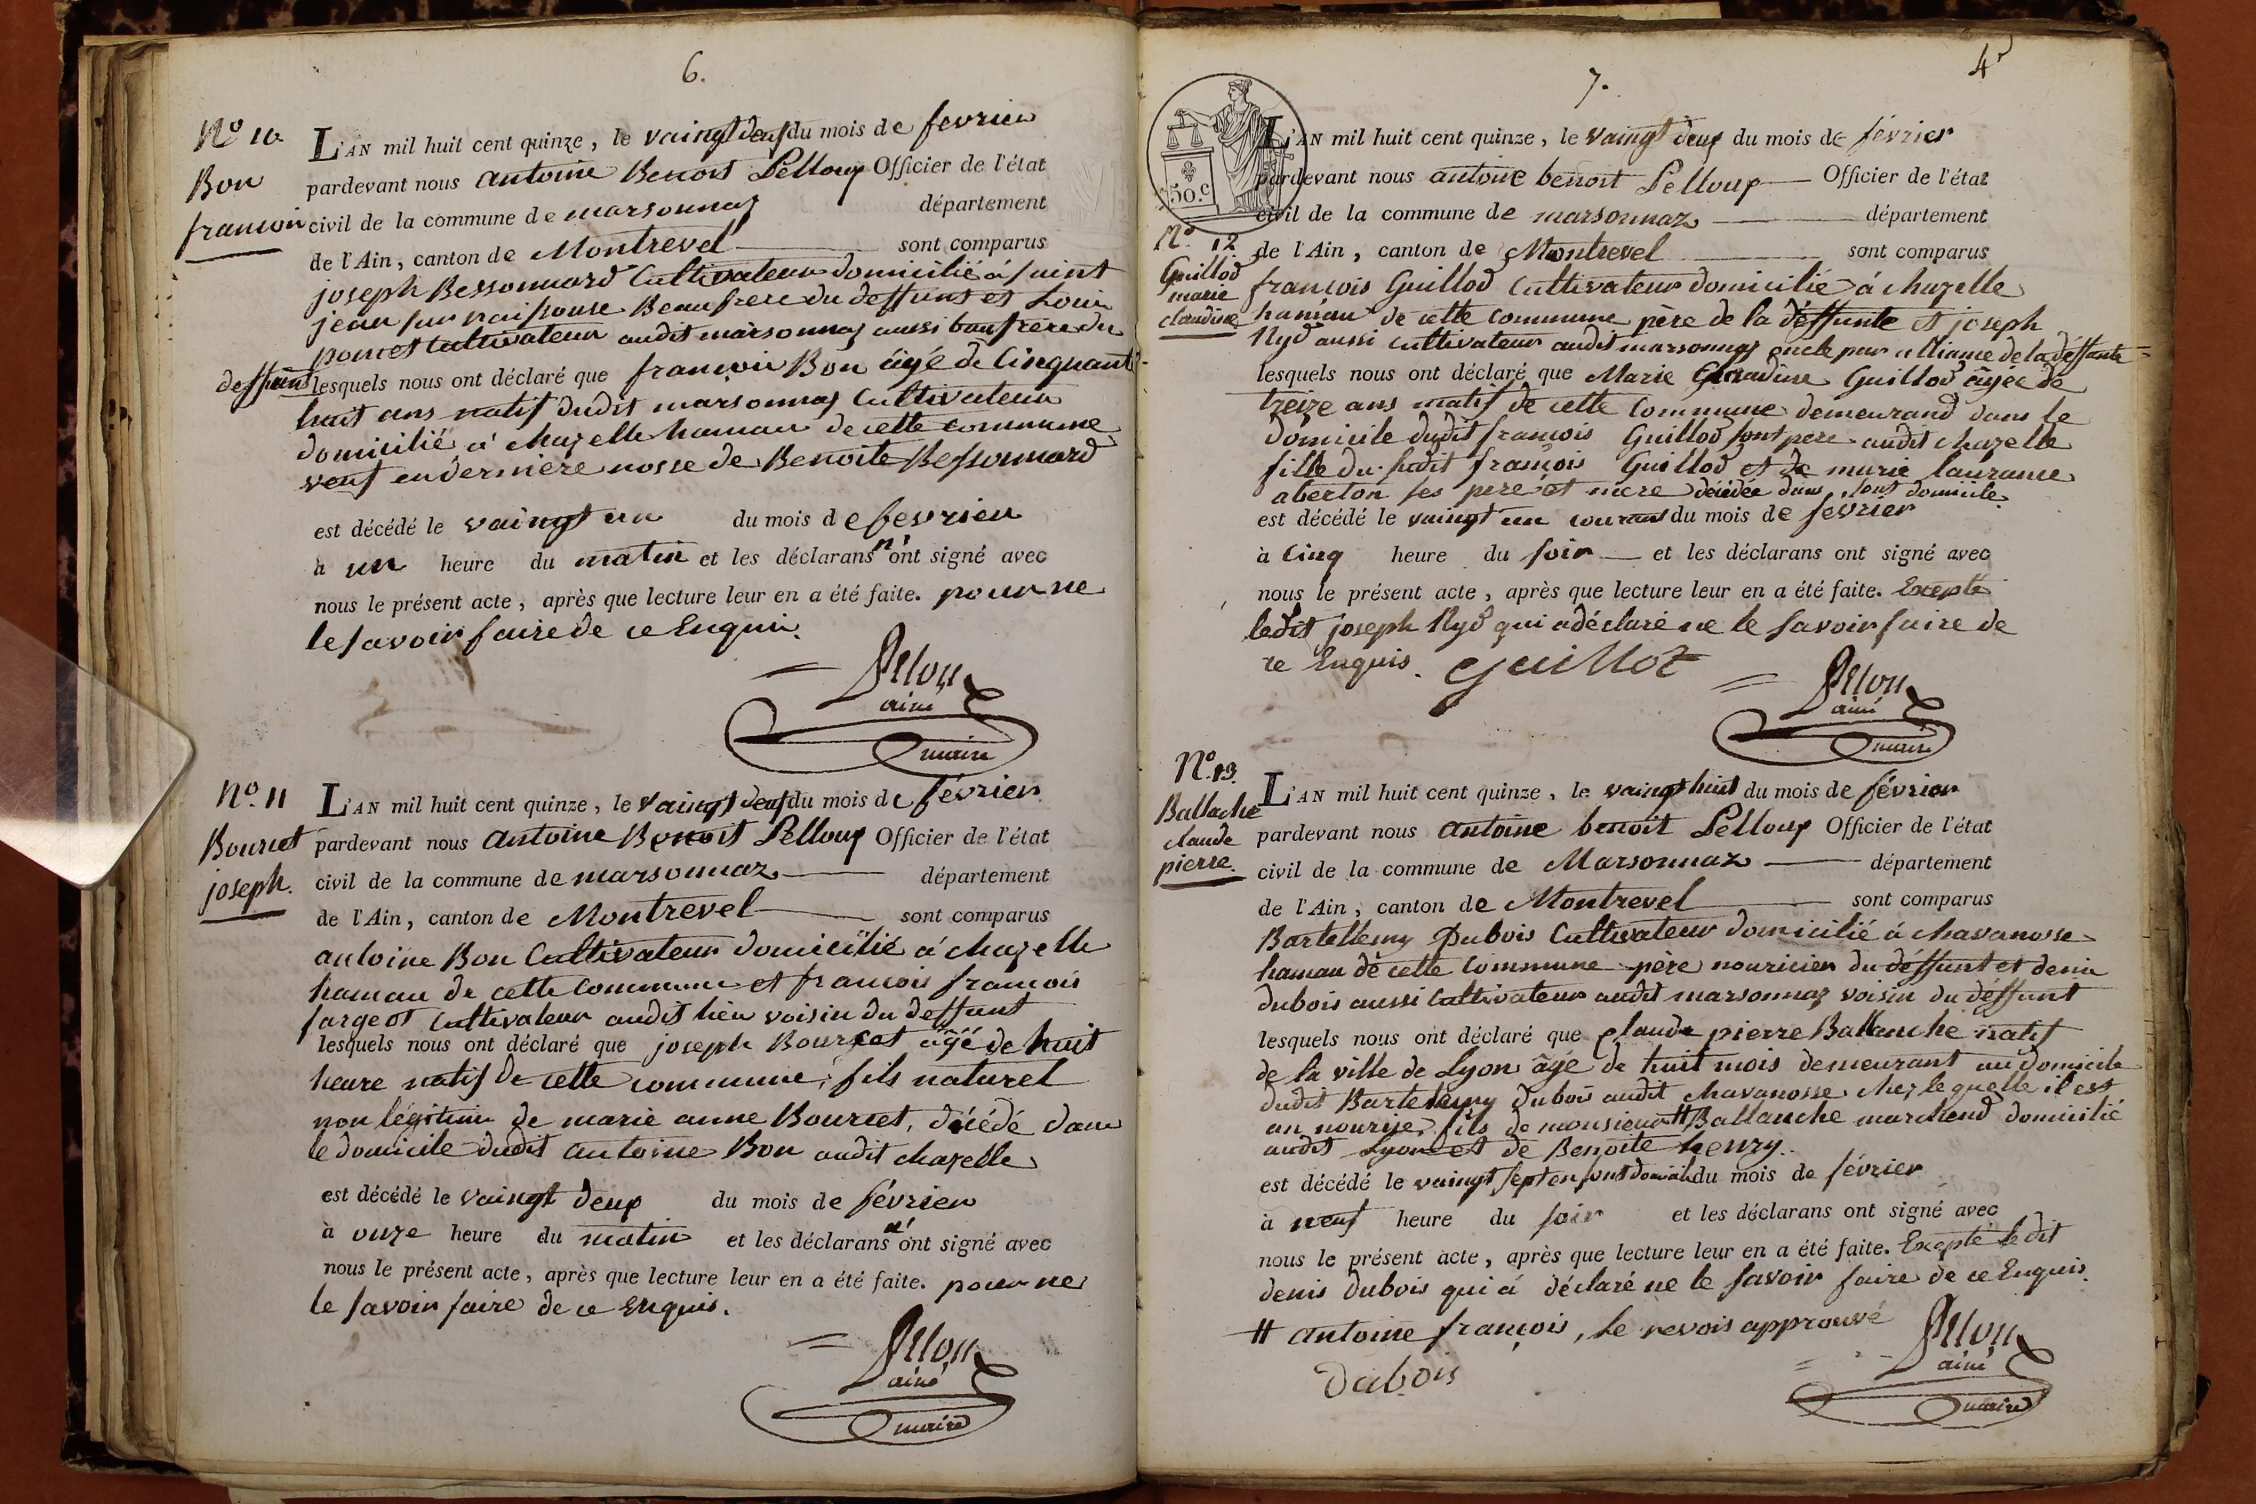 6.
No 10
Bon
francois
L'AN mil huit cent quinze, le vaingt deux du mois de fevrier
pardevant nous antoine Benoit Pelloux Officier de l'état
civil de la commune de marsonnaz département
de l'Ain, canton de Montrevel sont comparus
joseph Bessonnard Cultivateur domicilié à saint
jean sur raissouse Beaufrere du deffunt et Louis
poncet Cultivateur audit marsonnaz aussi baufrere du
deffunt lesquels nous ont déclaré que francois Bon âgé de Cinquante
huit ans natif dudit marsonnaz Cultivateur
domicilié à chazelle hamau de cette commune
veuf en derniere nosse de Benoite Bessonnard
est décédé le vaingt un du mois de fevrier
à un heure du matin et les déclarans n'ont signé avec
nous le présent acte, après que lecture leur en a été faite. pour ne
le savoir faire de ce Enquis.
Pelloux
ainé
maire
No. 11
Bourcet
joseph.
L'AN mil huit cent quinze, le vaingt deux du mois de février
pardevant nous antoine Benoit Pelloux Officier de l'état
civil de la commune de marsonnaz département
de l'Ain, canton de Montrevel sont comparus
antoine Bon Cultivateur domicilié à chazelle
hamau de cette commune et francois francois
fargeot cultivateur audit lieu voisin du deffunt
lesquels nous ont déclaré que joseph Bourcet âgé de huit
heure natif de cette commune, fils naturel
non légitime de marie anne Bourcet, décédé dans
le domicile dudit antoine Bon audit chazelle
est décédé le vaingt deux du mois de février
à onze heure du matin et les déclarans n'ont signé avec
nous le présent acte, après que lecture leur en a été faite. pour ne
le savoir faire de ce Enquis.
Pelloux
ainé
maire
7.
4
50.c
No. 12
Guillod
marie
claudine
L'AN mil huit cent quinze, le vaingt deux du mois de février
pardevant nous antoine benoit Pelloux Officier de l'état
civil de la commune de marsonnaz département
de l'Ain, canton de Montrevel sont comparus
françois Guillod Cultivateur domicilié à chazelle
hamau de cette commune père de la déffunte et joseph
Nyd aussi cultivateur audit marsonnaz oncle par alliance de la déffunte
lesquels nous ont déclaré que Marie Claudine Guillod âgée de
treize ans natif de cette Commune demeurand dans le
domicile dudit francois Guillod sont pere audit chazelle
fille du. sudit françois Guillod et de marie laurance
aberton ses pere et mere décédée dans sont domicile
est décédé le vaingt un courant du mois de février
à Cinq heure du soir et les déclarans ont signé avec
nous le présent acte, après que lecture leur en a été faite. Excepté
ledit joseph Nyd qui a déclaré ne le savoir faire de
ce Enquis. Guillot
Pelloux
ainé
maire
No. 13.
Ballache
claude
pierre.
L'AN mil huit cent quinze, le vaingt huit du mois de février
pardevant nous antoine benoit Pelloux Officier de l'état
civil de la commune de Marsonnaz département
de l'Ain, canton de Montrevel sont comparus
Bartellemy Dubois Cultivateur domicilié à chavanosse
hamau de cette Commune père nouricier du déffunt et denis
dubois aussi Cultivateur audit marsonnaz voisin du déffunt
lesquels nous ont déclaré que claude pierre Ballanche natif
de la ville de Lyon âgé de huit mois demeurant au domicile
dudit Bartelemy dubois audit chavanosse chez lequelle il est
an nourye, fils de monsieur # Ballanche marchend domicilié
audit Lyon et de Benoite henry.
est décédé le vaingt sept en sont domicile du mois de février
à neuf heure du soir et les déclarans ont signé avec
nous le présent acte, après que lecture leur en a été faite. Excepté ledit
denis dubois qui à déclaré ne le savoir faire de ce Enquis.
# antoine françois, le revois approuvé
Dubois
Pelloux
ainé
maire